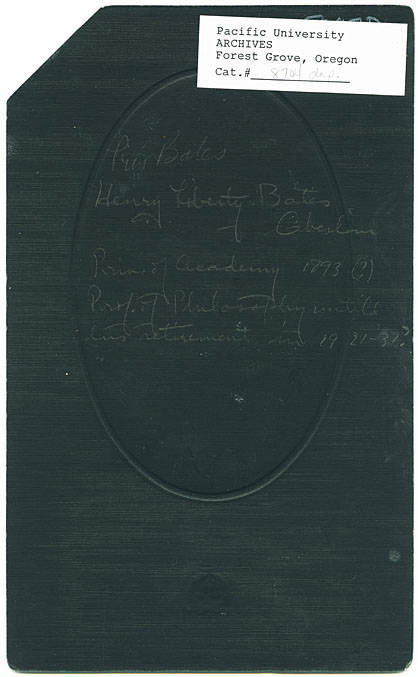 Pacific University
ARCHIVES
Forest Grove, Oregon
Cat.# 8704 dup.
Prof Bates
Henry Liberty Bates
of Oberlin
Prin. of Academy 1893 (?)
Prof. of Philosophy until
his retirement in 19